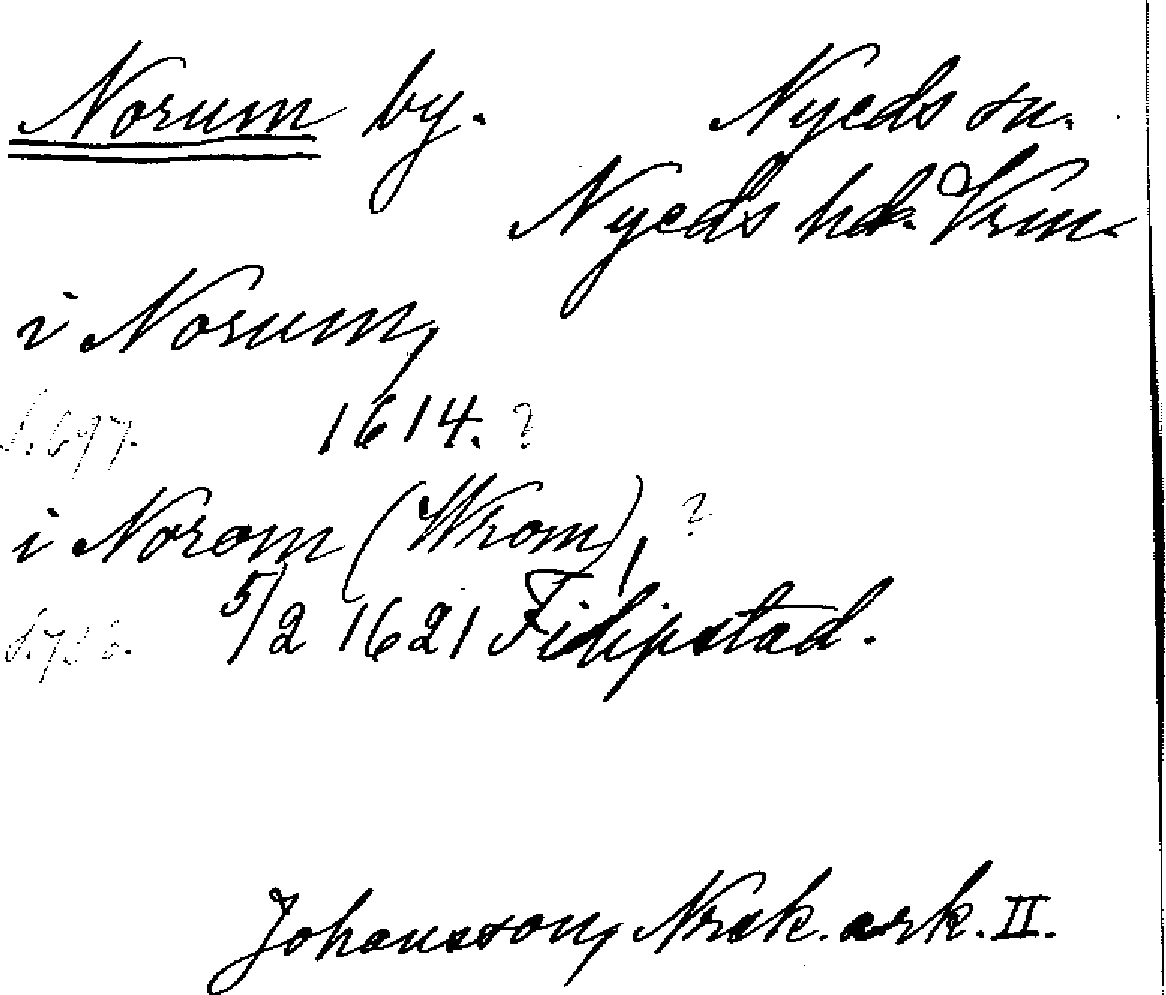 Norum by. Nyeds sn.
Nyeds hd. Vrm.
i Norum,
S. 697. 1614. ?
i Norom (Wrom), ?
5/2 1621 Filipstad.
Johansson, ark. II.